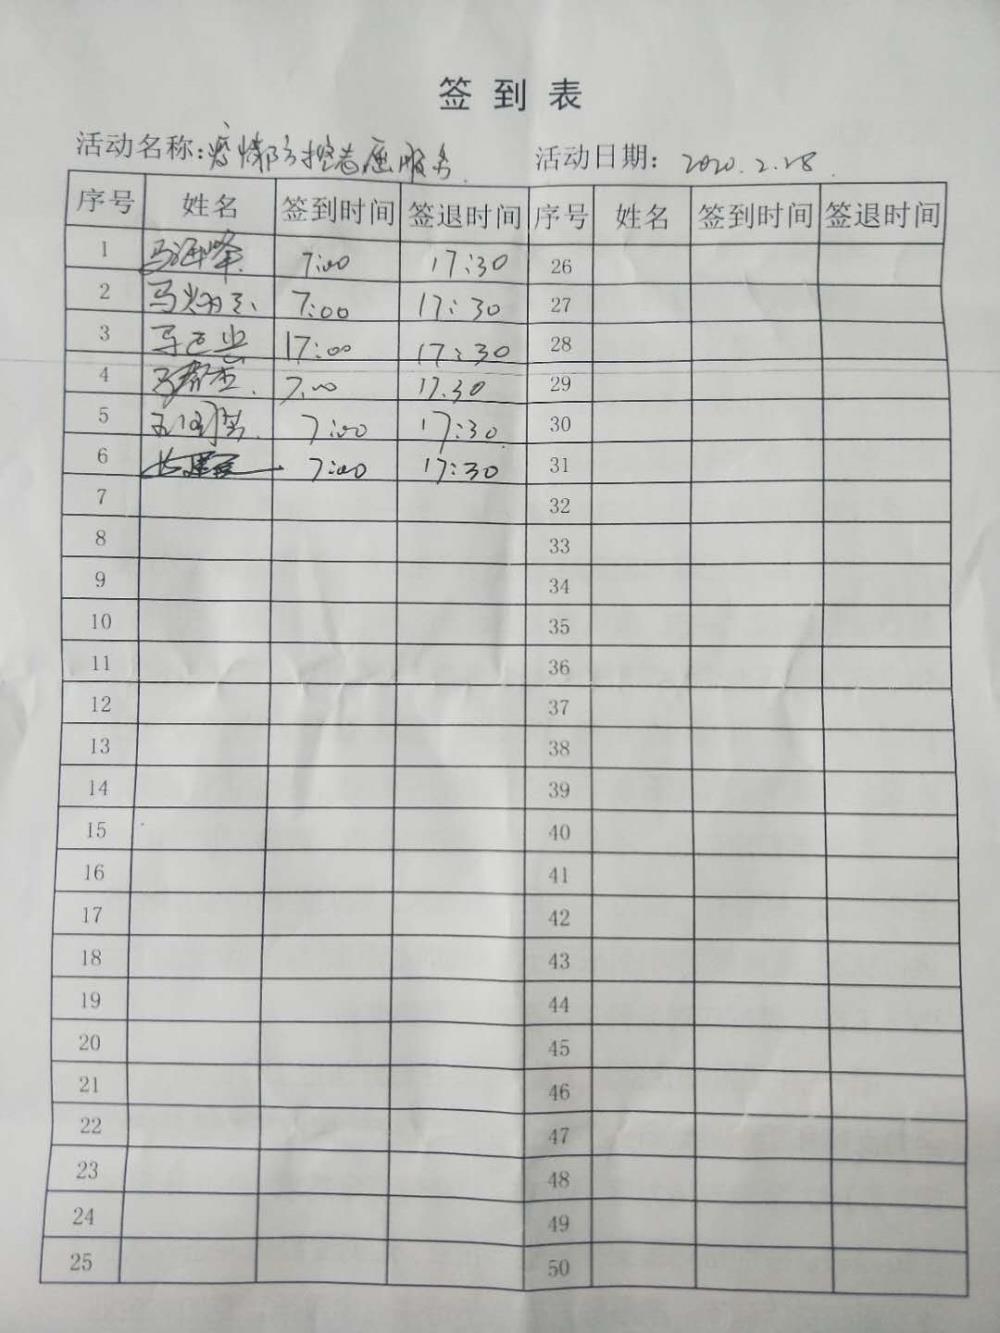 签到表
活动名称:疫情防控志愿服务 活动日期: 2020.2.28.
序号 姓名 签到时间 签退时间 序号 姓名 签到时间 签退时间
1 马海峰 7:00 17:30 26
2 7:00 17:30 27
3 17:00 17:30 28
4 7.00 17.30 29
5 7:00 17:30 30
6 7:00 17:30 31
7 32
8 33
9 34
10 35
11 36
12 37
13 38
14 39
15 40
16 41
17 42
18 43
19 44
20 45
21 46
22 47
23 48
24 49
25 50